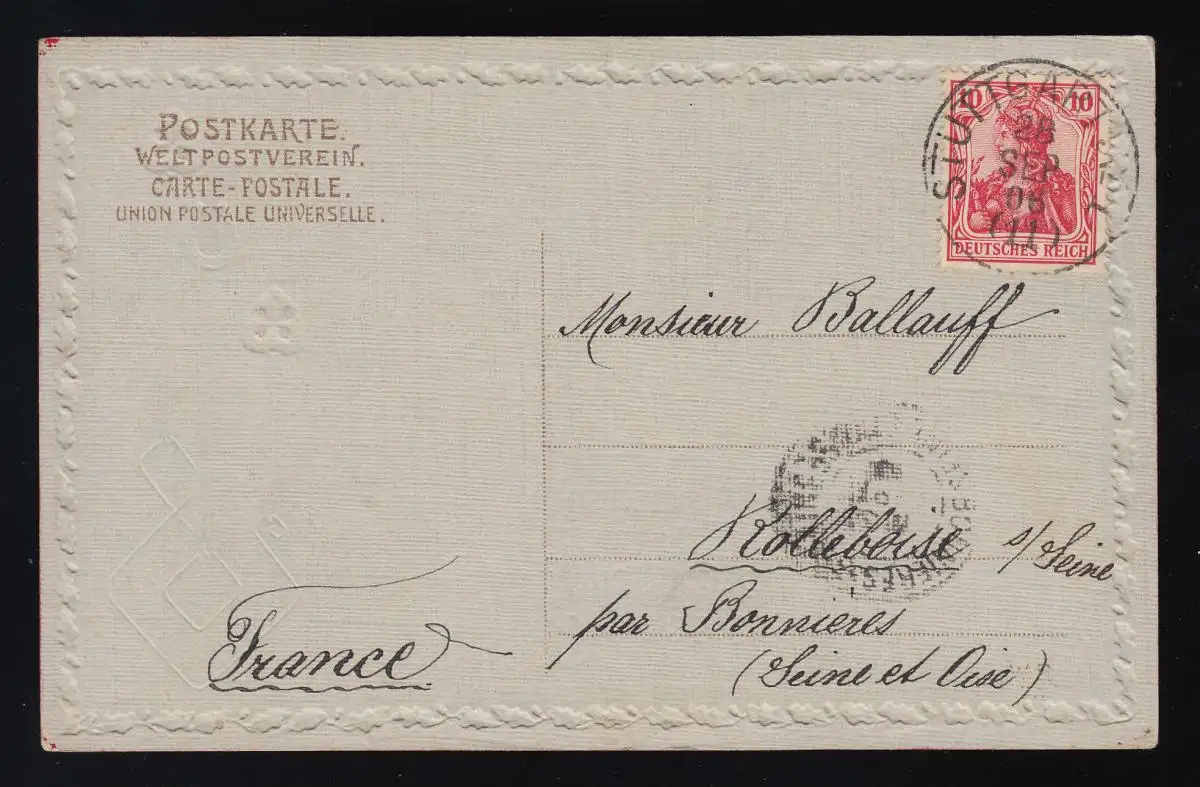 POSTKARTE.
WELTPOSTVEREIN.
CARTE-POSTALE.
UNION POSTALE UNIVERSELLE.
10 10
DEUTSCHES REICH
STUTTGART
SEP
06
(11)
Monsieur Ballauff
Rolleboise s/Seine
par Bonnieres
(Seine et Oise)
France